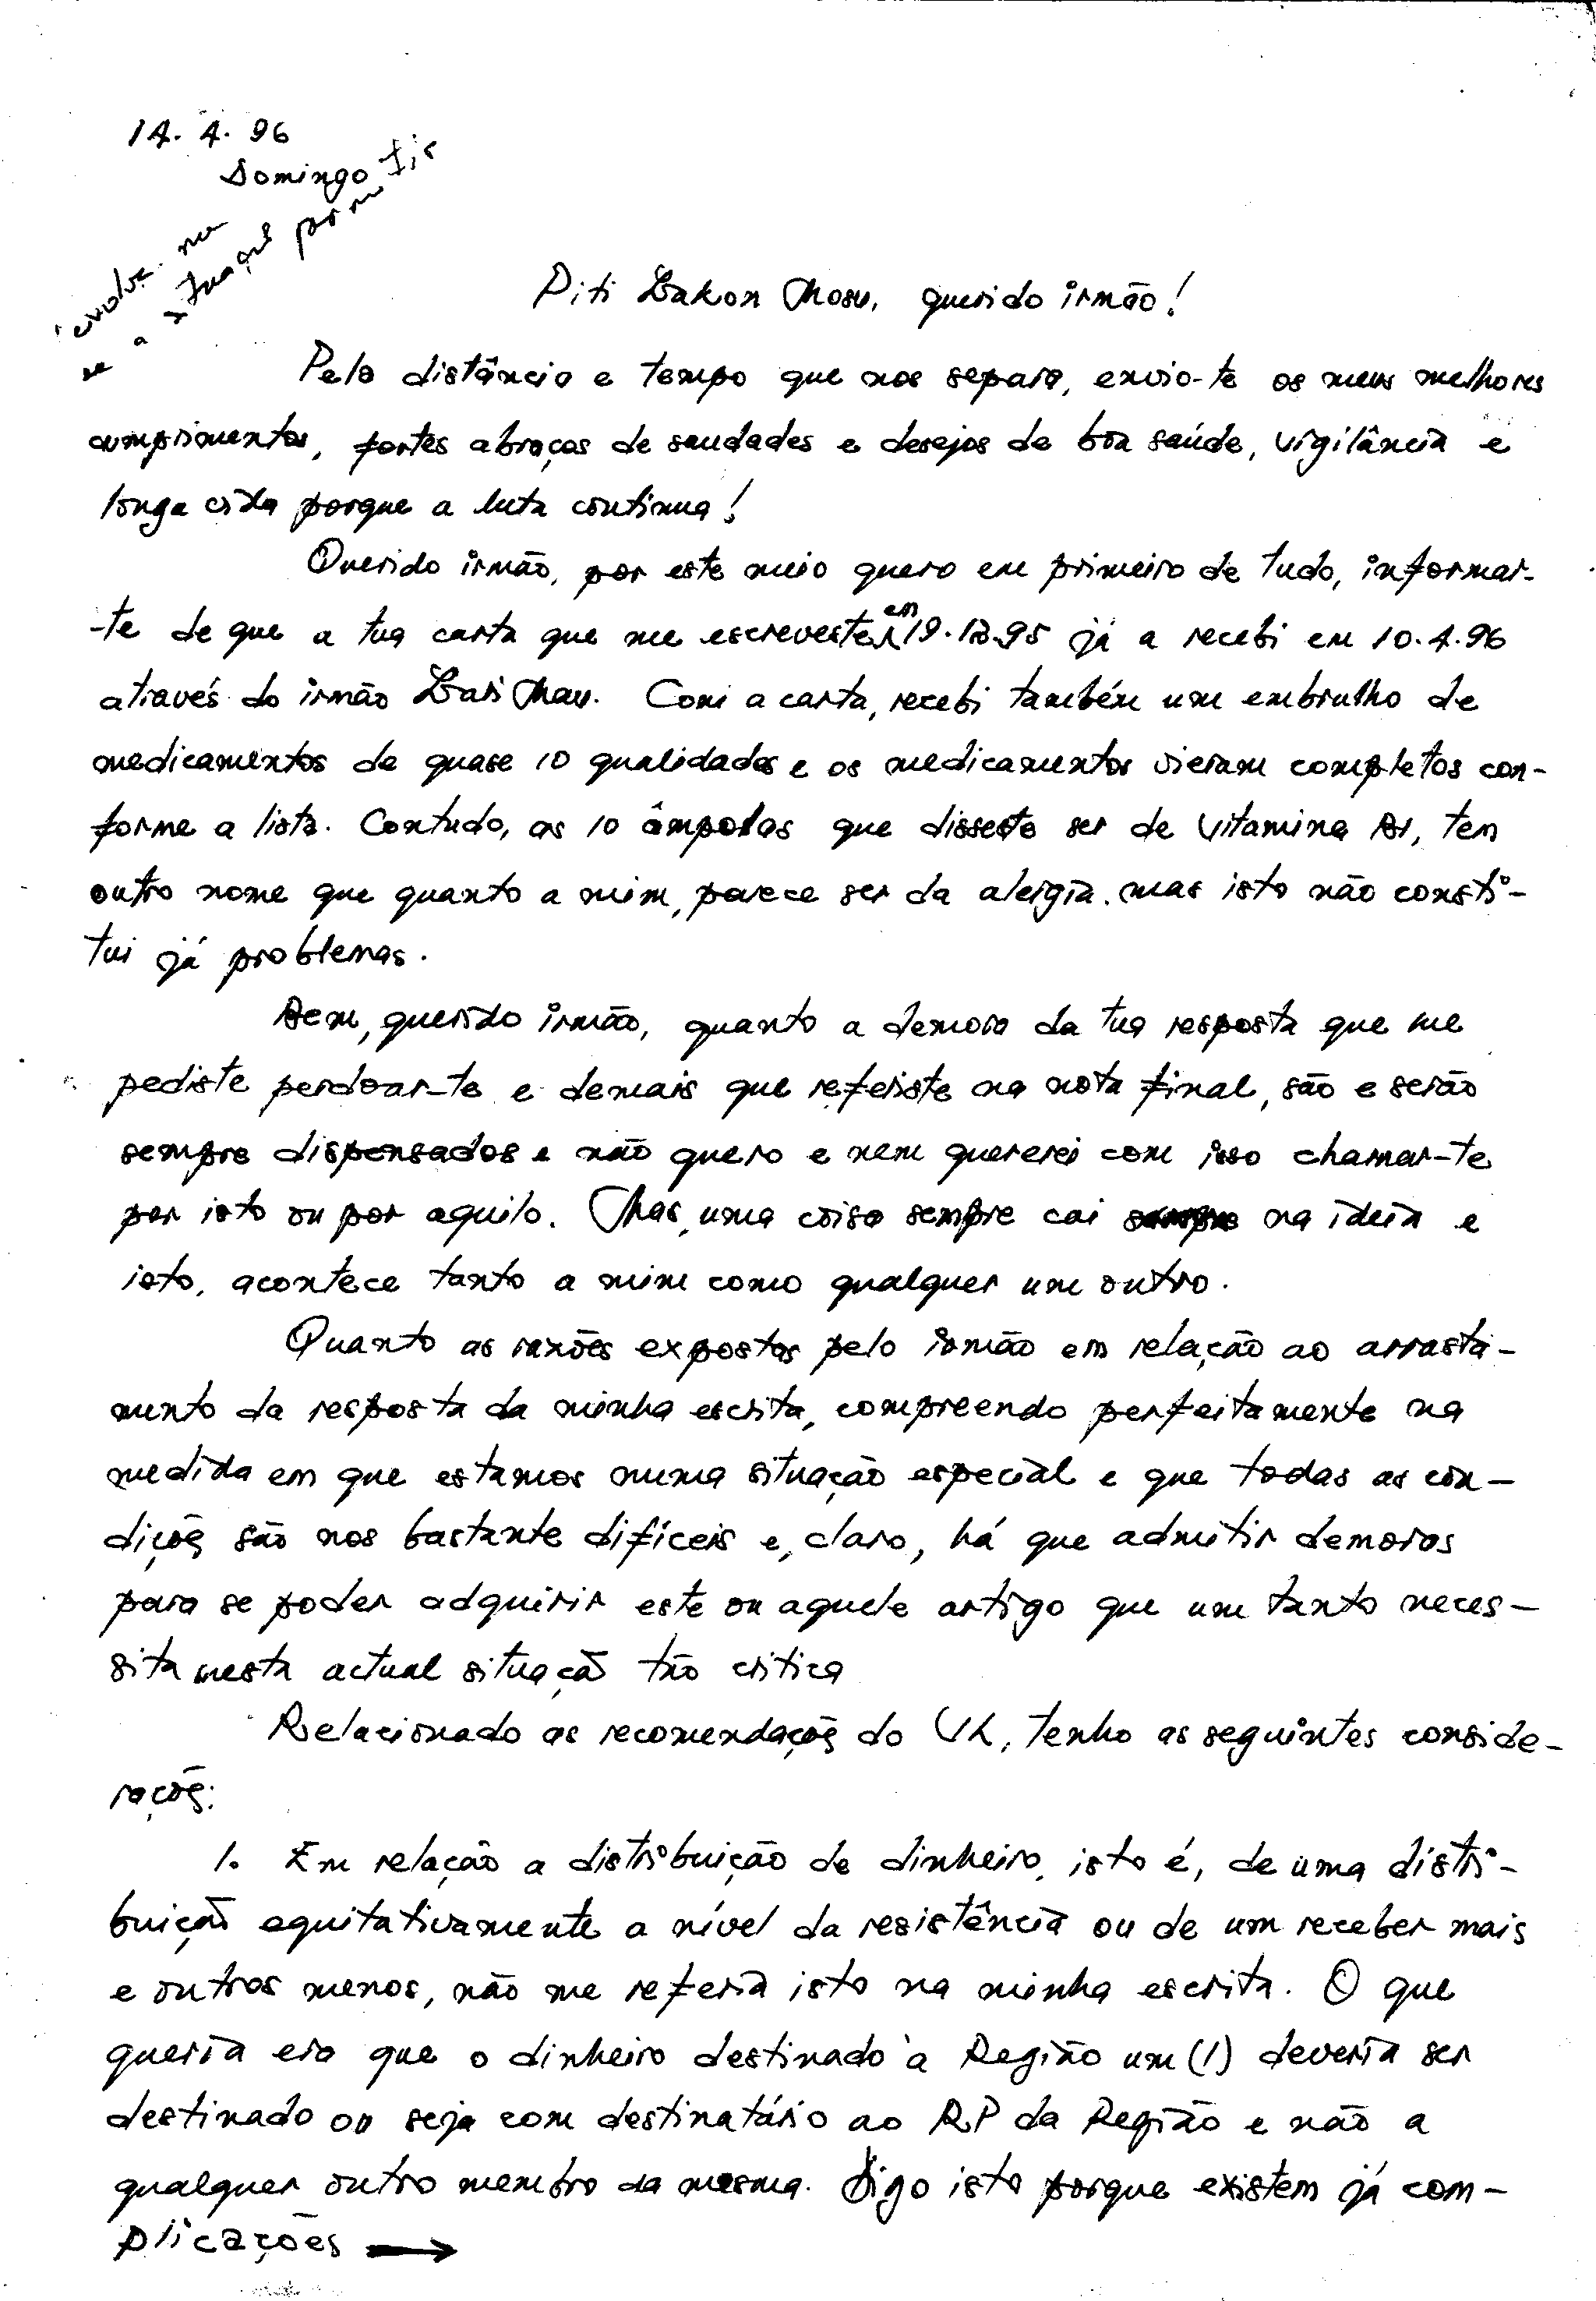 14. 4. 96
Domingo
se a situação permitir
Piti Lakon Mosu, querido irmão!
Pela distância e tempo que nos separa, envio-te os meus melhores
cumprimentos, fortes abraços de saudades e desejos de boa saúde, vigilância e
longa vida porque a luta continua!
Querido irmão, por este meio quero em primeiro de tudo, informar-
-te de que a tua carta que me escreveste em 19.12.95 já a recebi em 10.4.96
através do irmão Lari Mau. Com a carta, recebi também um embrulho de
medicamentos de quase 10 qualidades e os medicamentos vieram completos con-
forme a lista. Contudo, as 10 âmpolas que disseste ser de Vitamina B1, tem
outro nome que quanto a mim, parece ser da alergia. mas isto não consti-
tui já problemas.
Bem, querido irmão, quanto a demora da tua resposta que me
pediste perdoar-te e demais que referiste na nota final, são e serão
sempre dispensados e não quero e nem quererei com isso chamar-te
por isto ou por aquilo. Mas, uma coisa sempre cai na ideia e
isto, acontece tanto a mim como qualquer um outro.
Quanto as razões expostas pelo irmão em relação ao arrasta-
mento da resposta da minha escrita, compreendo perfeitamente na
medida em que estamos numa situação especial e que todas as con-
dições são nos bastante difíceis e, claro, há que admitir demoras
para se poder adquirir este ou aquele artigo que um tanto neces-
sita nesta actual situação tão critica
Relacionado as recomendações do VL, tenho as seguintes conside-
rações:
1. Em relação a distribuição de dinheiro, isto é, de uma distri-
buição equitativamente a nível da resistência ou de um receber mais
e outros menos, não me referia isto na minha escrita. O que
queria era que o dinheiro destinado à Região um (1) deveria ser
destinado ou seja com destinatário ao RP da Região e não a
qualquer outro membro da mesma. Digo isto porque existem já com-
plicações →